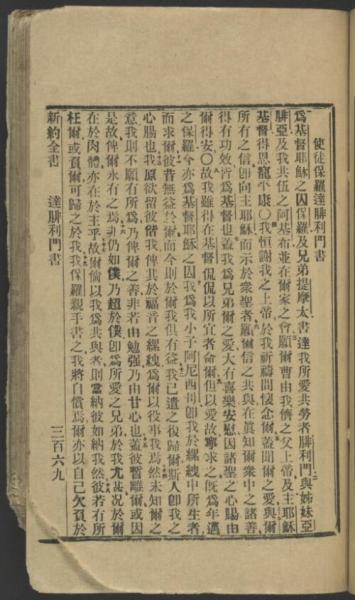 使徒保羅達腓利門書
爲基督耶穌之囚保羅及兄弟提摩太書達我所愛共勞者腓利門與姊妹亞
腓亞及我共伍之阿基布並在爾家之會願爾曹由我儕之父上帝及主耶穌
基督得恩寵平康〇我恒謝我之上帝於我祈禱間懷念爾蓋聞爾之愛與爾
所有之信卽向主耶穌而示於衆聖者願爾信之共與在眞知爾衆中之諸善
得有功效皆爲基督也蓋我爲兄弟爾之愛大有喜樂安慰因諸聖之心腸由
爾得安〇故我雖得在基督侃侃以所宜者命爾但以愛故寧求之旣爲年邁
之保羅今亦爲基督耶穌之囚我爲我小子阿尼西母卽我於縲絏中所生者
而求爾彼昔無益於爾而今則於爾我俱有益我已遣之復歸爾斯人卽我之
心腸也我原欲留彼偕我俾其於福音之縲絏爲爾以役事我焉然未知爾之
意我則不願有所爲乃俾爾之善非若由勉强乃由甘心也蓋彼暫離爾或因
是故俾爾永有之焉非仍如僕乃超於僕卽爲所愛之兄弟於我尤甚况於爾
在於肉體亦在於主乎故爾倘以我爲共與者則當納彼如納我然彼若有所
枉爾或負爾可歸之於我我保羅親手書之我將自償焉爾亦以自己欠負於
新約全書　達腓利門書　三百六九